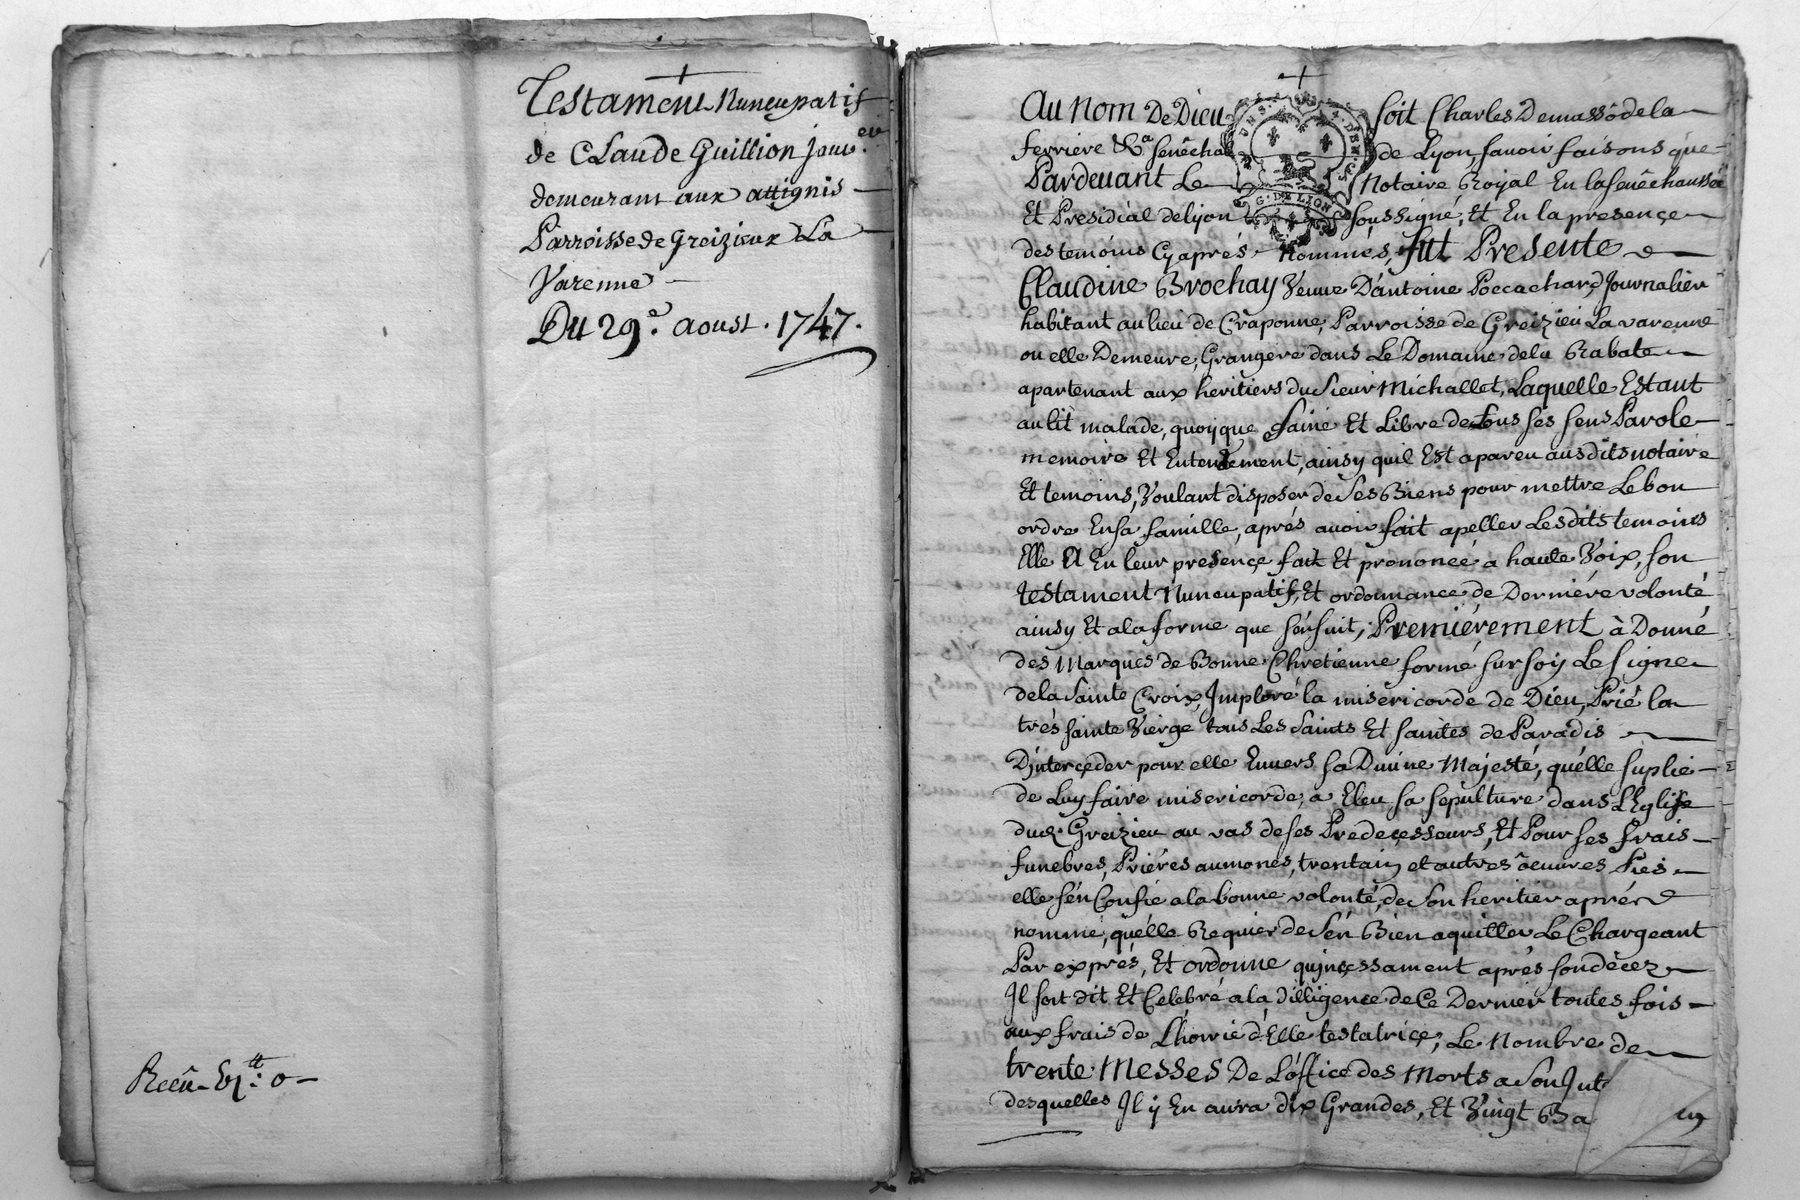 Testament Nuncupatif
de Claude Guillion
demeurant aux attignis
Parroisse de Greizieux La
Varenne
Du 29e. aoust. 1747.
Receu 6 tt: 0
Au Nom De Dieu soit Charles Demasso de la
ferriere senéchal de Lyon, savoir faisons que
Pardevant Le Notaire Royal En la senêchaussée
Et Presidial de lyon soussigné, Et En la presençe
G. DE LYON
des temoins Cyaprés Nommés, fut Presente
Claudine Brochay Veuve D'antoine Poccachard, Journalier
habitant au lieu de Craponne, Parroisse de Greizieu La varenne
ou elle Demeure, Grangere dans Le Domaine de la Rabate
apartenant aux heritiers du sieur Michallet, Laquelle Estant
au lit malade, quoyque saine Et Libre de tous ses sens Parole
memoire Et Entendement, ainsy quil Est apareu ausdits notaire
Et temoins, Voulant disposer de ses Biens pour mettre Le bon
ordre En sa famille, aprés avoir fait apeller Lesdits temoins
Elle A En leur presençe fait Et prononcé a haute Voix, son
testament Nuncupatif, Et ordonnance de Derniére volonté
ainsy Et a la forme que s'énsuit, Premiérement à Donné
des Marques de Bonne Chretienne formé sur soy Le signe
de la sainte Croix, Imploré la misericorde de Dieu, Prié la
trés sainte Vierge tous Les saints Et saintes de Paradis
D'interçeder pour elle Envers sa Divine Majesté, quélle suplie
de Luy faire misericorde, a Eleu sa sepulture dans L'Eglise
dud. Greizieu au vas de ses Predeçesseurs, Et Pour ses frais
funebres, Priéres aumones, trentain et autres oeuvres Pies
elle s'én Confie a la bonne volonté, de son heritier aprés
nommé, quélle Requier de s'én Bien aquitter Le Chargeant
Par exprés, Et ordonne quinçessament aprés son déçez
Il soit dit Et Celebré a la dilligence de Ce Dernier toutes fois
aux frais de L'hoirie d'Elle testatriçe, Le Nombre de
trente Messes De L'óffice des Morts a son Int
desquelles Il y En aura dix Grandes, Et Vingt Ba